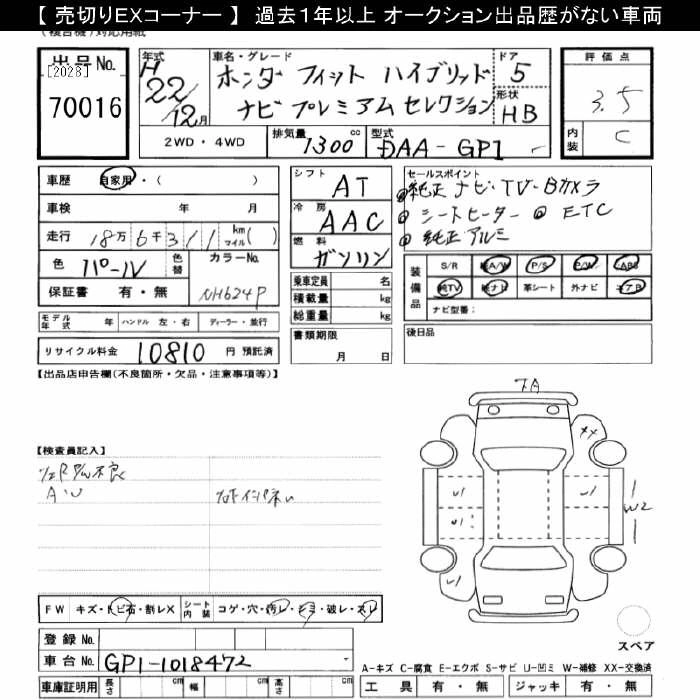 【 売切りＥＸコーナー 】 過去１年以上 オークション出品歴がない車両
出品No.
[2028]
70016
年式
H 22/12月
車名・グレード
ホンダ フィット ハイブリッド
ナビプレミアムセレクション
ドア
5
形状
HB
2WD ・ 4WD
排気量
1300 cc
型式
DAA-GP1
評価点
3.5
内装
C
車歴 自家用・( )
車検 年 月
走行 18万 6千 311 km マイル( )
色 パール
色替
カラーNo.
NH624P
保証書 有・無
シフト AT
冷房 AAC
燃料 ガソリン
乗車定員 名
積載量 kg
総重量 kg
セールスポイント
純正ナビ・TV・Bカメラ
シートヒーター ETC
純正アルミ
装備品
S/R A/W P/S P/W ABS
純TV 純ナビ 革シート 外ナビ エアB
ナビ型番：
モデル年式 年 ハンドル 左・右 ディーラー・並行
リサイクル料金 10810 円 預託済
書類期限
月 日
後日品
【出品店申告欄(不良箇所・欠品・注意事項等)】
【検査員記入】
A.U
FW キズ・トビ石・割レX シート内装 コゲ・穴・汚レ・シミ・破レ・スレ
登録 No.
車台 No. GP1-1018472
車庫証明用 長さ cm 幅 cm 高さ cm
XX
U1
U1
U1
U1
W2
スペア
A-キズ C-腐食 E-エクボ S-サビ U-凹ミ W-補修 XX-交換済
工具 有・無 ジャッキ 有・無